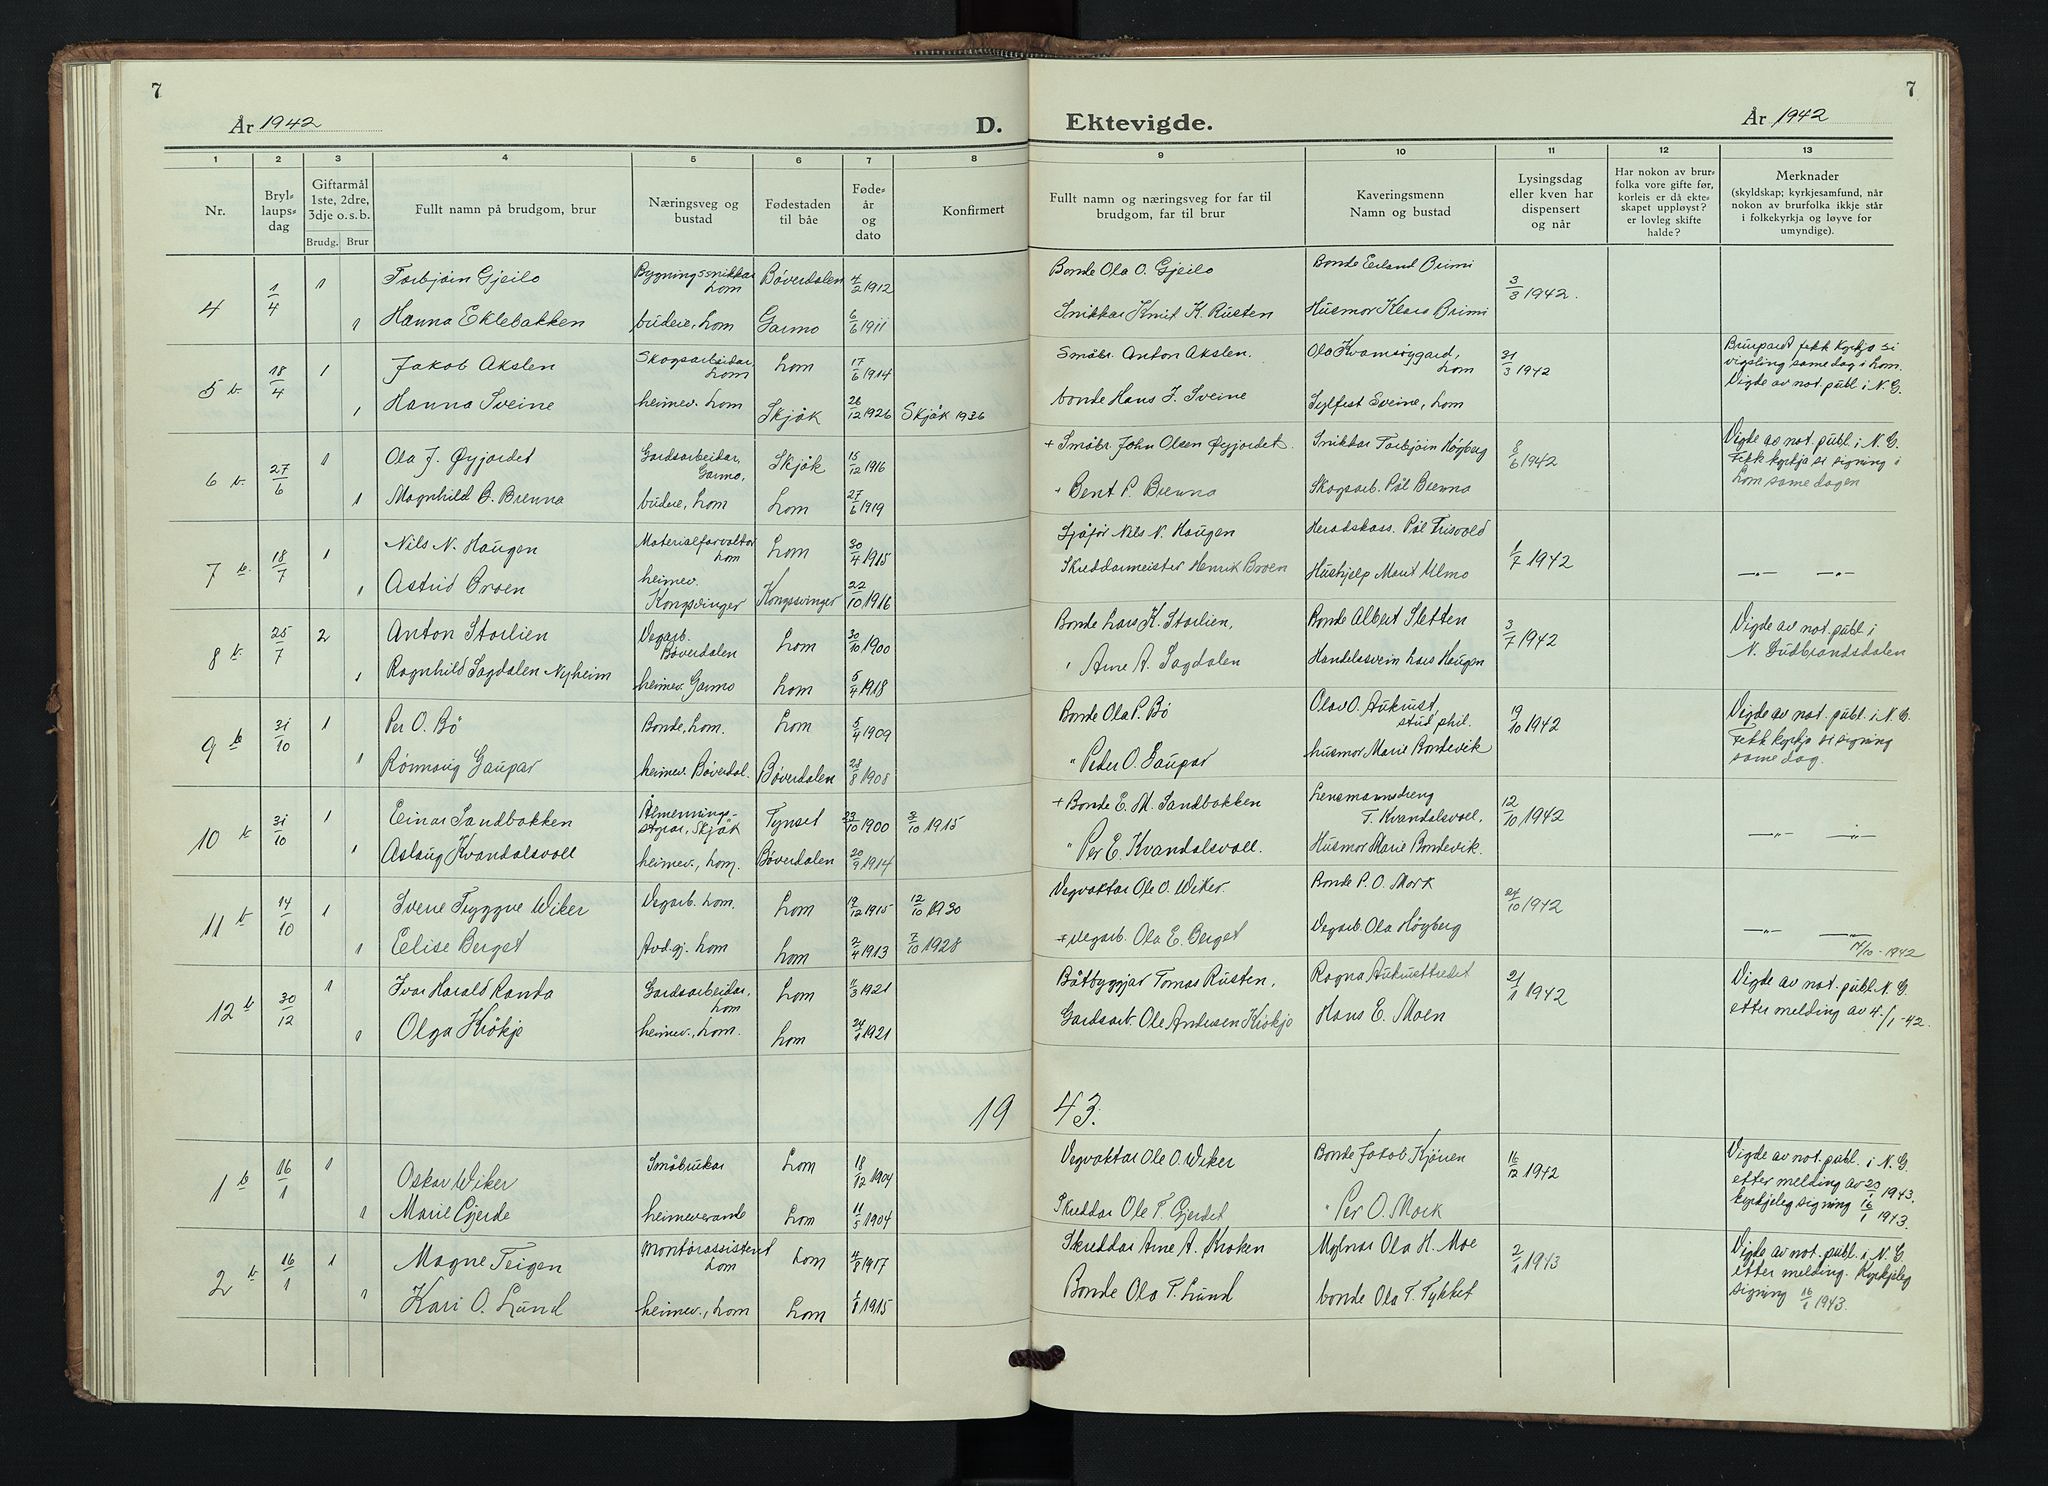 7
År 1942
D.
Ektevigde.
År 1942
7
1 2 3 4 5 6 7 8 9 10 11 12 13
Nr.
Bryllaupsdag
Giftarmål 1ste, 2dre, 3dje o. s. b.
Brudg. Brur
Fullt namn på brudgom, brur
Næringsveg og bustad
Fødestaden til båe
Fødeår og dato
Konfirmert
Fullt namn og næringsveg for far til brudgom, far til brur
Kaveringsmenn Namn og bustad
Lysingsdag eller kven har dispensert og når
Har nokon av brurfolka vore gifte før, korleis er då ekteskapet uppløyst? er lovleg skifte halde?
Merknader (skyldskap; kyrkjesamfund, når nokon av brurfolka ikkje står i folkekyrkja og løyve for umyndige).
4 1/4 1 Torbjørn Gjeilo Bygningssnikkar Lom Bøverdalen 4/2 1912 Bonde Ola O. Gjeilo Bonde Erland Brimi 3/3 1942.
1 Hanna Eklebakken budeie, Lom Garmo 6/6 1911 Snikkar Knut K. Rusten Husmor Klara Brimi
5 b. 18/4 1 Jakob Akslen Skogsarbeidar, Lom Lom 17/6 1914 Småbr. Anton Akslen. Ola Kvamsøygard, Lom 31/3 1942 Brurparet fekk kyrkja si vigsling same dag i Lom. Vigde av not. publ. i N. G.
1 Hanna Sveine heimev. Lom Skjåk 26/12 1926 Skjåk 1936 bonde Hans J. Sveine Sylfest Sveine, Lom
6 b. 27/6 1 Ola J. Øyjordet Gardsarbeidar, Garmo, Skjåk 15/12 1916 + Småbr. John Olsen Øyjordet. Snikkar Torbjørn Høyberg 8/6 1942 Vigde av not. publ. i N. G. Fekk kyrkja si signing i Lom same dagen
1 Magnhild B. Brenna budeie, Lom Lom 27/6 1919 + Bent P. Brenna Skogsarb. Pål Brenna
7 b. 18/7 1 Nils N. Haugen Materialforvaltar Lom Lom 30/4 1915 Sjåfør Nils N. Haugen Heradskass. Pål Frisvold 1/7 1942 —"— —"—
1 Astrid Broen heimev. Kongsvinger Kongssvinger 22/10 1916 Skreddarmeister Henrik Broen Hushjelp Marit Ulmo
8 b. 25/7 2 Anton Storlien Vegarb. Bøverdalen Lom 30/10 1900 Bonde Lars K. Storlien, Bonde Albert Sletten 3/7 1942 Vigde av not. publ. i N. Gudbrandsdalen
1 Ragnhild Sagdalen Nyheim heimev. Garmo Lom 5/4 1918 " Arne A. Sagdalen Handelssvein Lars Haugen
9 b 31/10 1 Per O. Bø Bonde, Lom. Lom 5/4 1909 Bonde Ola P. Bø Olav O. Aukrust, stud phil. 19/10 1942 Vigde av not. publ. i N. G. Fekk kyrkja si signing same dag.
1 Rønnaug Gaupar heimev. Bøverdal. Bøverdalen 28/8 1908 " Peder O. Gaupar husmor Marie Bondevik
10 b 31/10 1 Einar Sandbakken Ålmennings-styrar, Skjåk Tynset 23/10 1900 3/10 1915 + Bonde E. M. Sandbakken Lensmannsdreng T. Kvandalsvoll, 12/10 1942 —"— "
1 Aslaug Kvandalsvoll heimev., Lom. Bøverdalen 20/9 1914 " Per E. Kvandalsvoll. Husmor Marie Bondevik.
11 b 14/10 1 Svene Tryggve Wiker Vegarb. Lom. Lom 19/12 1915 12/10 1930 Vegvaktar Ole O. Wiker. Bonde P. O. Mork 24/10 1942 —"— —"—
1 Eelise Berget Avd.gj. Lom Lom 2/4 1913 7/10 1928 + Vegarb. Ola E. Berget Vegarb Ola Høyberg 14/10-1942
12 b 30/12 1 Ivar Harald Randa Gardsarbeidar, Lom Lom 11/3 1921 Båtbyggjar Tomas Rusten, Ragna Aukrusttrædet 21/1 1942 Vigde av not. publ. N. G. etter melding av 4./1-42.
1 Olga Krøkje heimev., Lom. Lom 24/1 1921 Gardsarb. Ole Andersen Krøkje Hans E. Moen
1943.
1 b 16/1 1 Oskar Wiker Småbrukar Lom 18/12 1904 Vegvaktar Ole O. Wiker Bonde Jakob Kjøren 16/12 1942 Vigde av not. publ. i N. G. etter melding av 23/1 1943. Kyrkjeleg signing 16/1 1943.
1 Marie Gjerde heimeverande Lom 11/5 1904 Skreddar Ole T. Gjerdet " Per O. Mork
2 b 16/1 1 Magne Teigen Montørassistent Lom Lom 4/8 1917 Skreddar Arne A. Kroken Mylnar Ola H. Moe 2/1 1943 Vigde av not. publ. i N. G. etter melding. Kyrkjeleg signing 16/1 1943.
1 Kari O. Lund heimev., Lom Lom 1/8 1915 Bonde Ola T. Lund bonde Ola T. Tykket